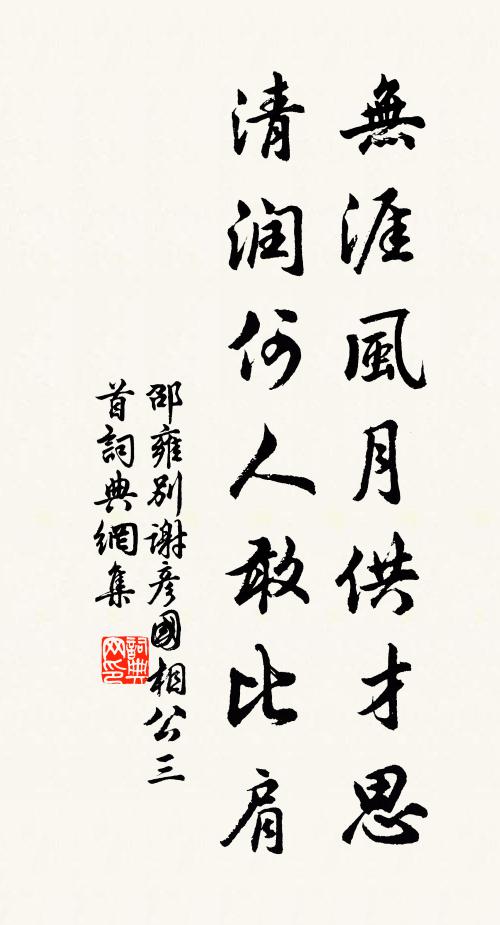 無涯風月供才思
清润何人敢比肩
邵雍別谢彥國相公三
首詞典網集
詞典
网印